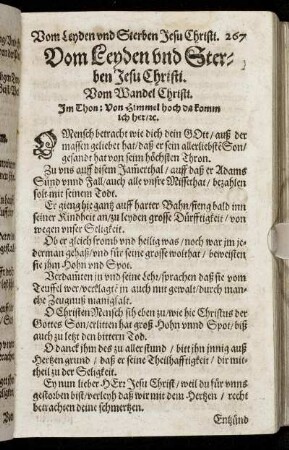 Vom Leyden vnd Sterben Jesu Christi. 267
Vom Leyden vnd Ster-
ben Jesu Christi.
Vom Wandel Christi.
Im Thon: Von Himmel hoch da komm
ich her/ꝛc.
O Mensch betracht wie dich dein GOtt/ auß der
massen geliebet hat/ daß er sein allerliebste Son/
gesandt hat von seim höchsten Thron.
Zu vns auff disem Jamerthal/ auff daß er Adams
Sünd vnnd Fall/ auch alle vnsre Missethat/ bezahlen
solt mit seinem Todt.
Er gieng hie gantz auff harter Bahn/ fieng bald inn
seiner Kindheit an/ zu leyden grosse Dürfftigkeit/ von
wegen vnser Seligkeit.
Ob er gleich fromb vnd heilig was/ noch war jm je-
derman gehaß/ vnd für seine grosse wolthat/ beweisten
sie jhm Hohn vnd Spot.
Verdamten jn vnd seine Lehr/ sprachen daß sie vom
Teuffel wer/ verklagt/ jn auch mit gewalt/ durch man-
che Zeugnuß manigfalt.
O Christen Mensch sih eben zu/ wie hie Christus der
Gottes Son/ erlitten hat groß Hohn vnnd Spot/ biß
auch zu letzt den bittern Tod.
O danck jhm des zu aller stund/ bitt jhn jnnig auß
Hertzen grund/ daß er seine Theilhafftigkeit/ dir mit-
theil zu der Seligkeit.
Ey nun lieber HErr Jesu Christ/ weil du für vnns
gestorben bist/ verleyh daß wir mit dem Hertzen/ recht
betrachten deine schmertzen.
Entzünd